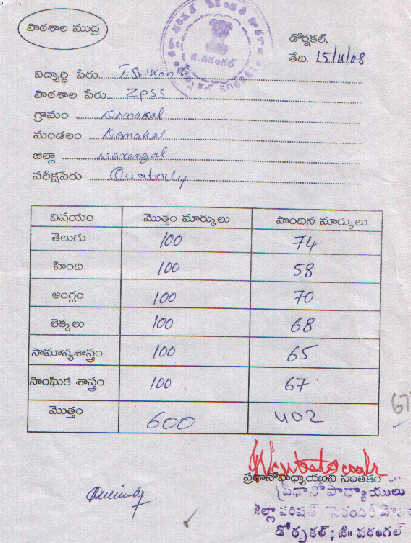 పాఠశాల ముద్ర
డోర్నకల్,
తేది. 15/11/08
విద్యార్థి పేరు
పాఠశాల పేరు ZPSS
గ్రామం Dornakal
మండలం Dornakal
జిల్లా warangal
పరీక్షపేరు Quaterly
విషయం మొత్తం మార్కులు పొందిన మార్కులు
తెలుగు 100 74
హింది 100 58
ఆంగ్లం 100 70
లెక్కలు 100 68
సామాన్యశాస్త్రం 100 65
సాంఘిక శాస్త్రం 100 67
మొత్తం 600 402
67
ప్రధానోపాధ్యాయుని సంతకం
ప్రధానోపాధ్యాయులు
జిల్లా పరిషత్
డోర్నకల్; జి॥ వరంగల్